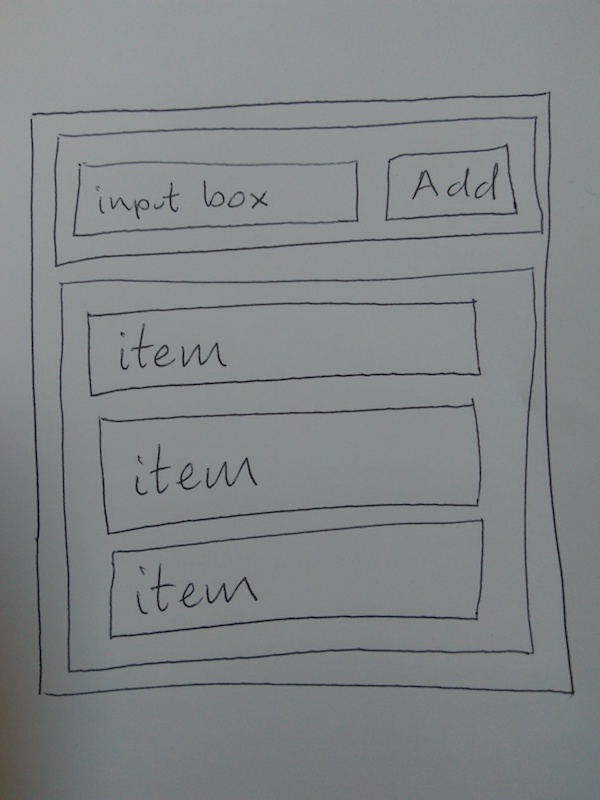 input box Add
item
item
item